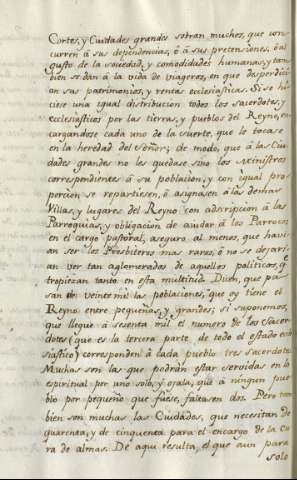 Cortes, y Ciudades grandes sobran muchos, que con-
curren á sus dependencias, ó á sus pretensiones, ó al
gusto de la sociedad, y comodidades humanas, y tam-
bien se dán á la vida de viageros, en que desperdici-
an sus patrimonios, y rentas ecclesiasticas. Si se hi-
ciese una igual distribucion todos los Sacerdotes, y
ecclesiasticos por las tierras, y pueblos del Reyno, en-
cargandose cada uno de la suerte, que lo tocase
en la heredad del Señor; de modo, que á las Ciu-
dades grandes no les quedase sino los Ministros
correspondientes á su poblacion, y con igual pro-
porcion se repartiesen, ó asignasen á las demas
Villas, y lugares del Reyno con adscripcion á las
Parroquias, y obligacion de aiudar á los Parrocos
en el cargo pastoral, aseguro al menos, que havi-
an ser los Presbiteros mas raros, ó no se dejari-
an ver tan aglomerados de aquellos politicos, qe
tropiezan tanto en esta multitud. Dicen, que pa-
san de veinte mil las poblaciones, que oy tiene el
Reyno entre pequeñas, y grandes; si suponemos,
que llegue á sesenta mil el numero de los Sacer-
dotes (que es la tercera parte de todo el estado ecle-
siastico) corresponden á cada pueblo tres Sacerdotes
Muchas son las que podrán estar servidas en lo
espiritual por uno solo, y ojala, que á ningun pue-
blo por pequeño que fuese, faltasen dos. Pero tam-
bien son muchas las Ciudades, que necesitan de
quarenta, y de cinquenta para el encargo de la Cu-
ra de almas. De aqui resulta, el que aun para
solo